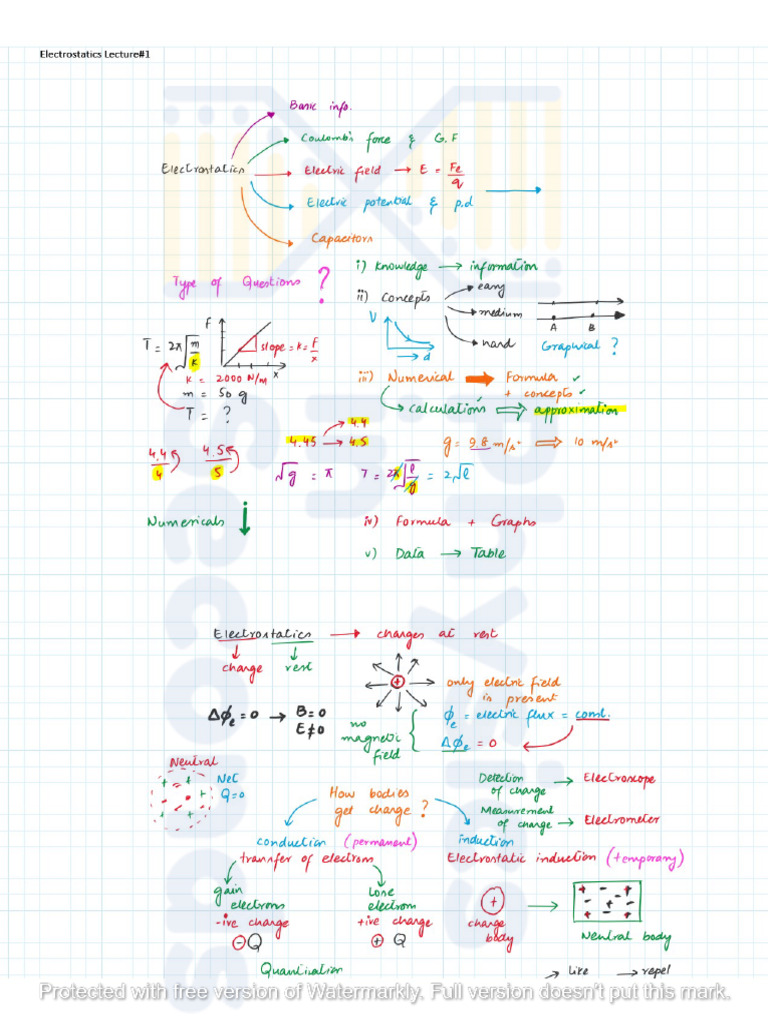 Electrostatics Lecture#1
Basic info.
Coulomb's force & G.F
Electrostatics
Electric field → E = Fe/q
Electric potential & p.d
Capacitors
Type of Questions ?
i) Knowledge → information
ii) Concepts
easy
medium
hard
A B
Graphical ?
V
d
T = 2π√(m/k)
F
x
slope = k = F/x
k = 2000 N/m
m = 50 g
T = ?
iii) Numerical → Formula ✓
+ concepts ✓
calculations ✓ ⇒ approximation
4.45 → 4.4
→ 4.5
g = 9.8 m/s² ⇒ 10 m/s²
4.4/4 4.5/5
√g = π T = 2π√(l/g) = 2√l
Numericals ↓
iv) Formula + Graphs
v) Data → Table
Electrostatics → charges at rest
charge rest
+
only electric field
is present
Δϕe = 0 → B = 0
E ≠ 0
no
magnetic
field
ϕe = electric flux = const.
Δϕe = 0
Neutral
Net
Q = 0
How bodies
get charge ?
Detection
of charge → Electroscope
Measurement
of charge → Electrometer
conduction (permanent)
transfer of electrom
induction
Electrostatic induction (temporary)
gain
electrons
-ive charge
- Q
Lose
electrom
+ive charge
+ Q
+
charge
body
Neutral body
Quantisation
→ like → repel
Protected with free version of Watermarkly. Full version doesn't put this mark.